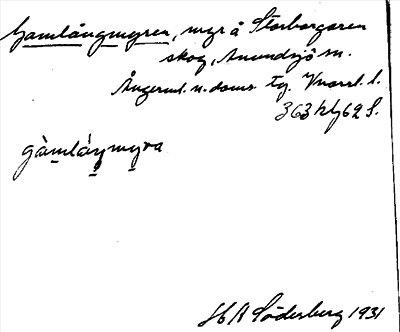 Gamlångmyren, myr å Storborgaren
skog, Anundsjö sn.
Ångerml. n. doms. tg. Vnorrl. l.
363 h/g 62 S.
gàmláŋmyra
H A Söderberg 1931